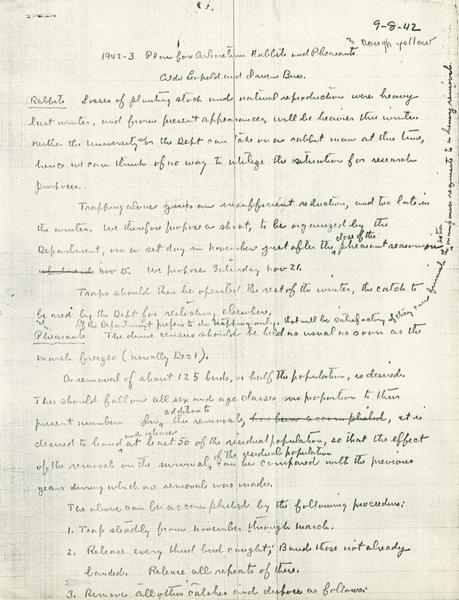 9-8-42
3 rough yellow
1942-3 Plan for Arboretum Rabbits and Pheasants
Aldo Leopold and Irven Buss.
Rabbits Losses of planting stock and natural reproduction were heavy
last winter, and from present appearances, will be heavier this winter.
Neither the University or the Dept can take on a rabbit man at this time,
hence we can think of no way to utilize the situation for research
purposes.
Trapping alone gives an insufficient reduction, and too late in
the winter. We therefore propose a shoot, to be organized by the
Department, on a set day in November just after the close of the pheasant season on
Nov 15. We propose Saturday Nov 21.
Traps should then be operated the rest of the winter, the catch to
be used by the Dept for restocking elsewhere.
If the Department prefers to do trapping only, that will be satisfactory if they can furnish the
manpower requisite to a heavy removal.
Pheasants The drive census should be held as usual as soon as the
marsh freezes (usually Dec 1).
A removal of about 125 birds, or half the population, is desired.
This should fall on all sex and age classes in proportion to their
present numbers. In addition to this removal, has been accomplished, it is
desired to band and release at least 50 of the residual population, so that the effect
of the removal on the survival of the residual population can be compared with the previous
years during which no removal was made.
The above can be accomplished by the following procedure:
1. Trap steadily from November through March.
2. Release every third bird caught; Band those not already
banded. Release all repeats of these.
3. Remove all other catches and dispose as follows: